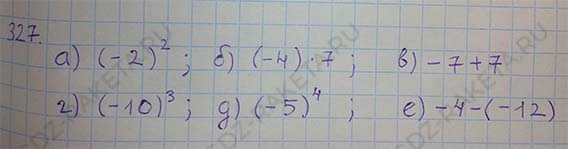 327.
а) (-2)²; б) (-4)·7; в) -7+7
г) (-10)³; д) (-5)⁴; е) -4-(-12)
GDZ-RAKETA.RU